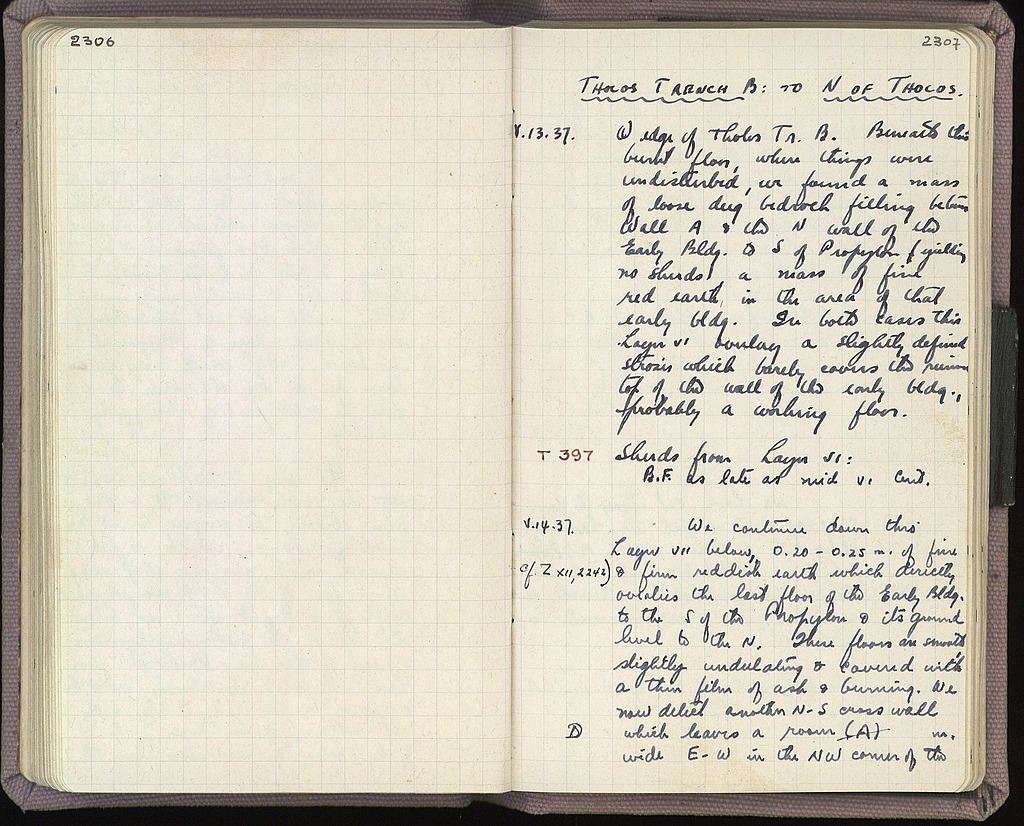 2306
2307
THOLOS TRENCH B: TO N OF THOLOS.
V.13.37. W edge of Tholos Tr. B. Beneath this
burnt floor, where things were
undisturbed, we found a mass
of loose dug bedrock filling between
Wall A & the N wall of the
Early Bldg. to S of Propylon (yielding
no sherds) a mass of fine
red earth, in the area of that
early bldg. In both cases this
Layer VI overlay a slightly defined
strosis which barely covers the
top of the wall of the early bldg.,
probably a working floor.
T 397 Sherds from Layer VI:
B.F. as late as mid VI cent.
V.14.37. We continue down thro'
Layer VII below, 0.20 - 0.25 m. of fine
cf. Z XII, 2242) & firm reddish earth which directly
overlies the last floor of the Early Bldg.
to the S of the Propylon & its ground
level to the N. These floors are smooth
slightly undulating & covered with
a thin film of ash & burning. We
now detect another N-S cross wall
D which leaves a room (A) m.
wide E-W in the NW corner of the